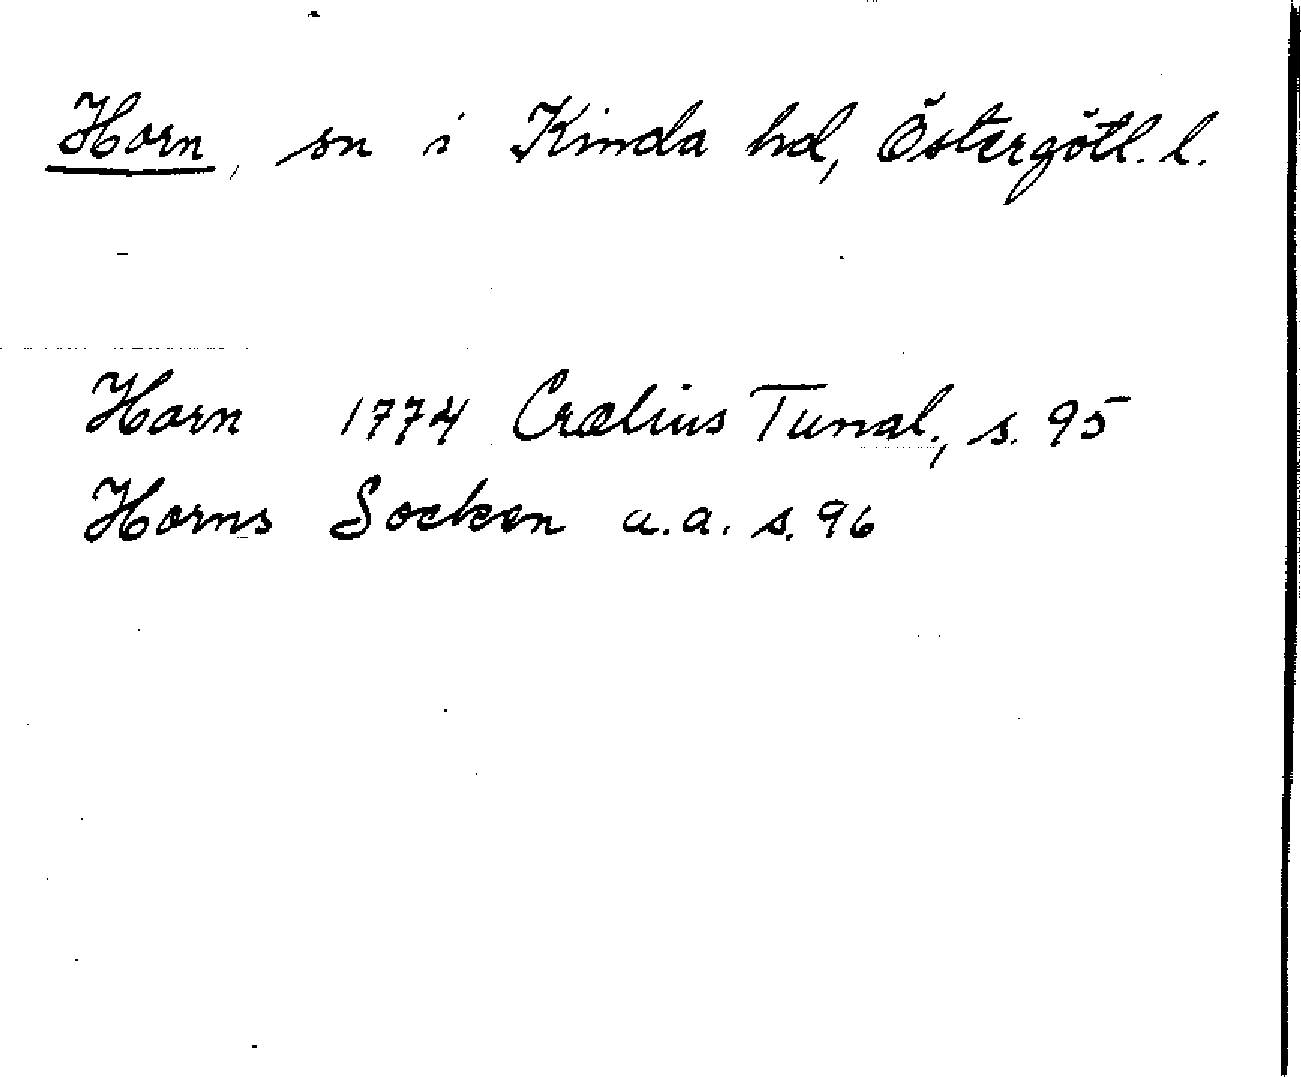 Horn, sn i Kinda hd, Östergötl. l.
Horn 1774 Crælius Tunal., s. 95
Horns Socken a.a. s. 96